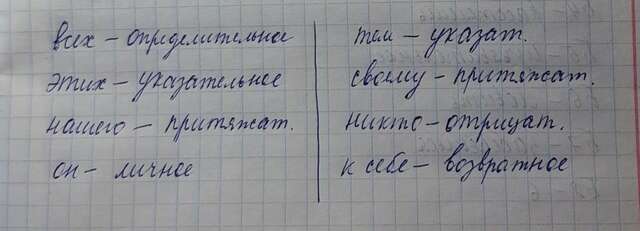 всех – определительное
этих – указательное
нашего – притяжат.
он – личное
тем – указат.
своему – притяжат.
никто – отрицат.
к себе – возвратное